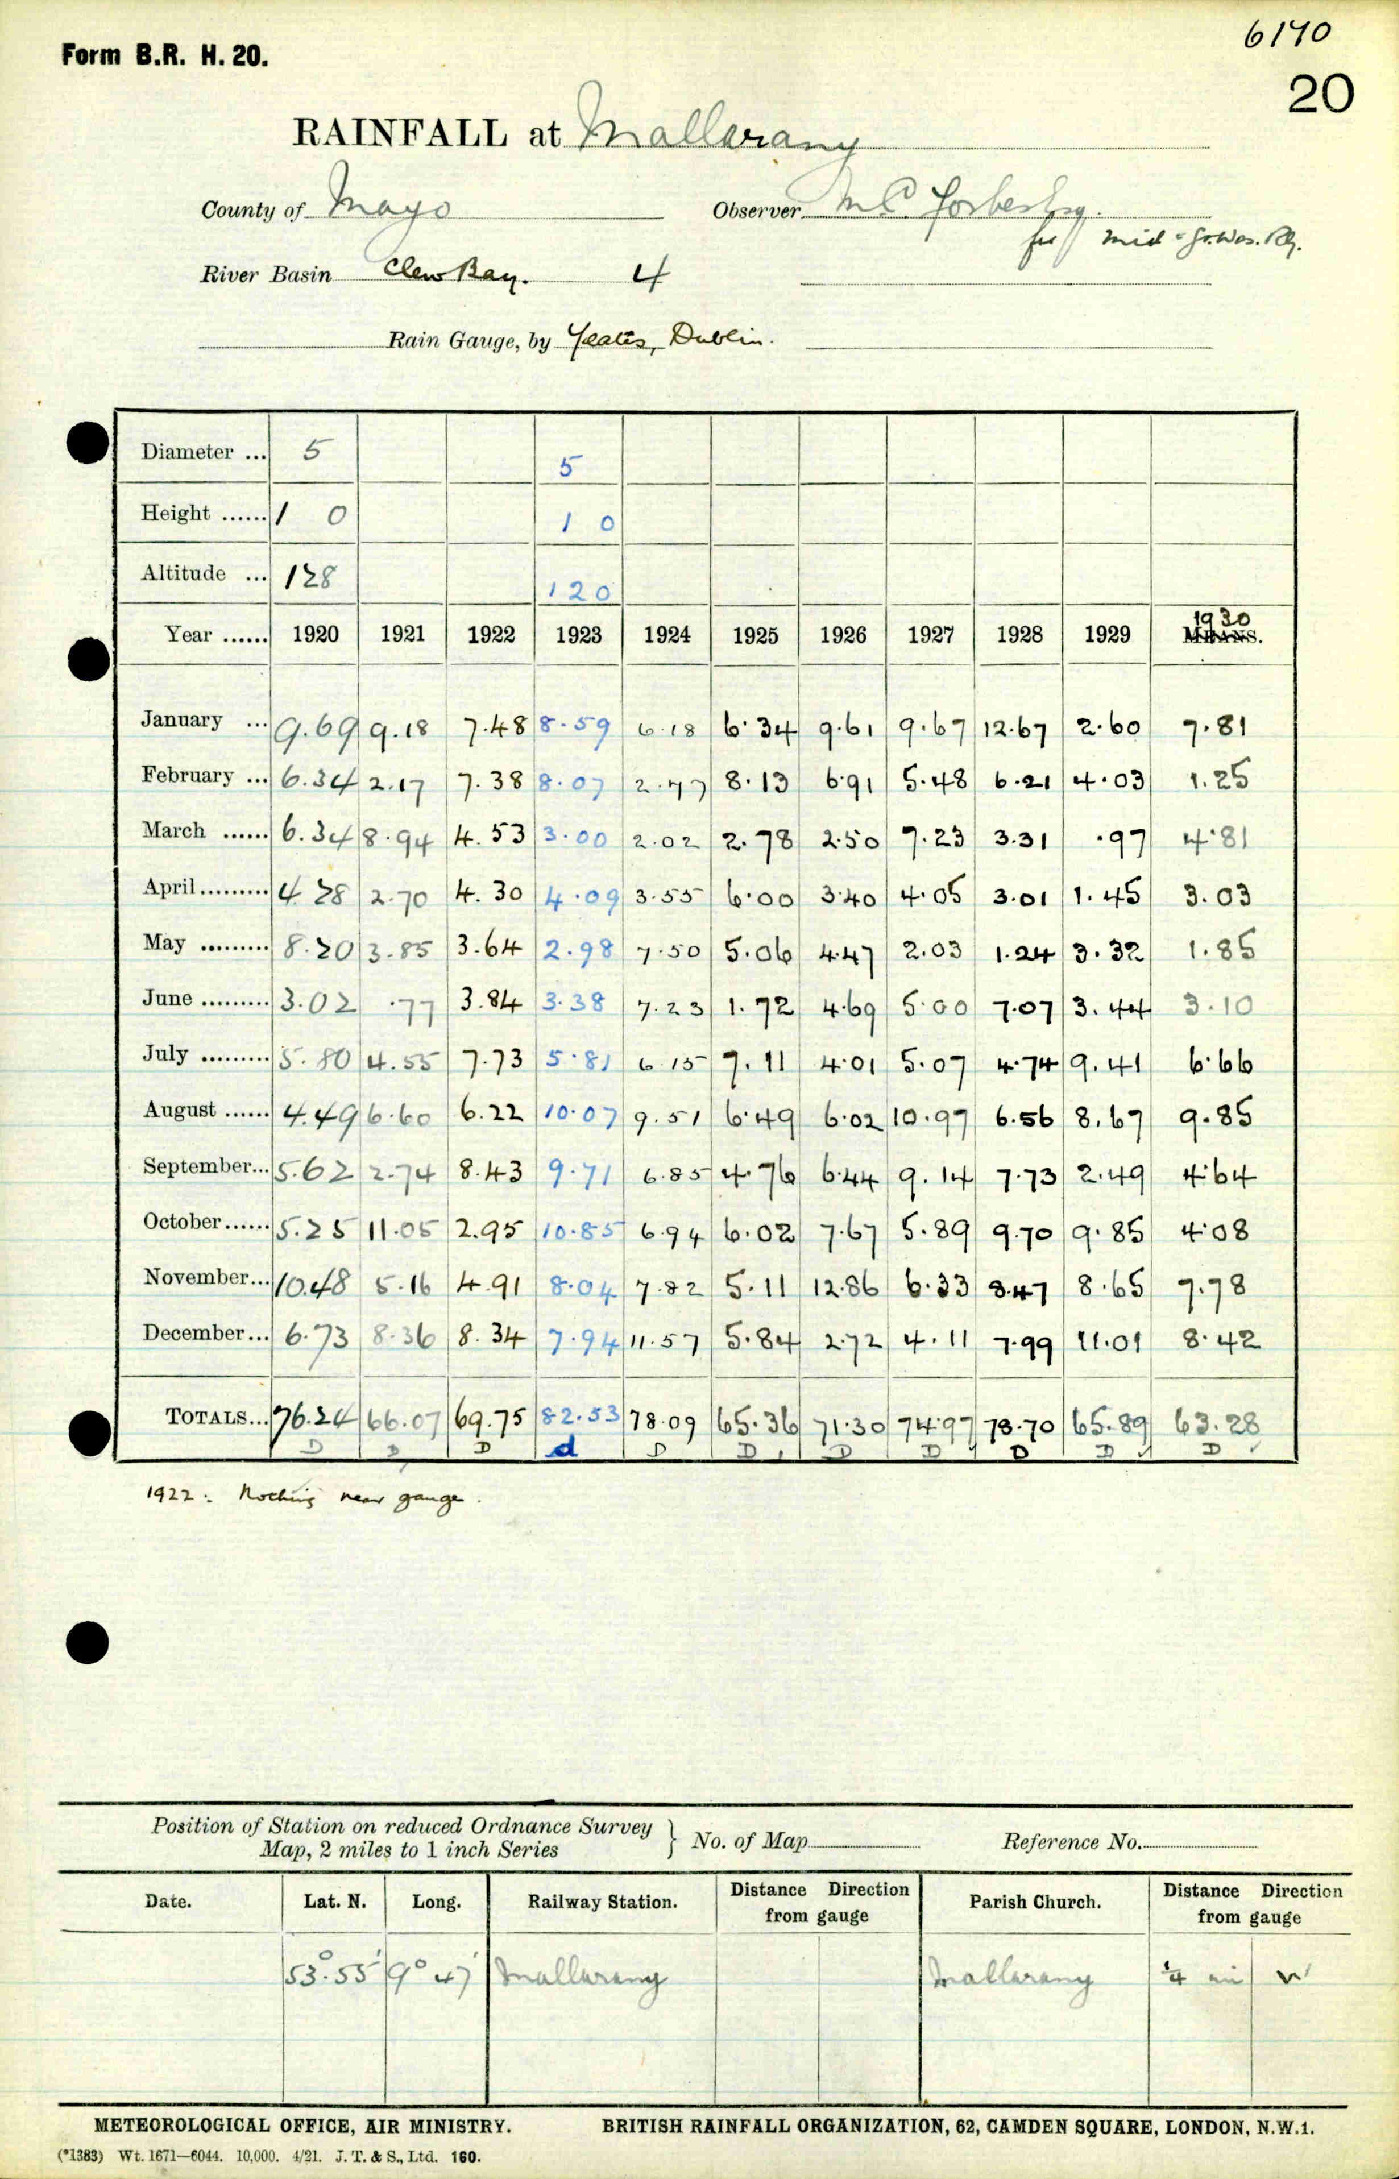 6170
Form B.R. H. 20.
20
RAINFALL at Mallarany
County of Mayo Observer M.C. Forbes Esq.
for Mid-Gt. Wes. Rly.
River Basin Clew Bay. 4
Rain Gauge, by Yeates, Dublin.
Diameter ... 5 5
Height ...... 1 0 1 0
Altitude ... 128 120
Year ...... 1920 1921 1922 1923 1924 1925 1926 1927 1928 1929 1930 MEANS.
January ... 9.69 9.18 7.48 8.59 6.18 6.34 9.61 9.67 12.67 2.60 7.81
February ... 6.34 2.17 7.38 8.07 2.77 8.13 6.91 5.48 6.21 4.03 1.25
March ...... 6.34 8.94 4.53 3.00 2.02 2.78 2.50 7.23 3.31 .97 4.81
April ......... 4.28 2.70 4.30 4.09 3.55 6.00 3.40 4.05 3.01 1.45 3.03
May ......... 8.20 3.85 3.64 2.98 7.50 5.06 4.47 2.03 1.24 3.32 1.85
June ......... 3.02 .77 3.84 3.38 7.23 1.72 4.69 5.00 7.07 3.44 3.10
July ......... 5.80 4.55 7.73 5.81 6.15 7.11 4.01 5.07 4.74 9.41 6.66
August ...... 4.49 6.60 6.22 10.07 9.51 6.49 6.02 10.97 6.56 8.67 9.85
September... 5.62 2.74 8.43 9.71 6.85 4.76 6.44 9.14 7.73 2.49 4.64
October...... 5.25 11.05 2.95 10.85 6.94 6.02 7.67 5.89 9.70 9.85 4.08
November... 10.48 5.16 4.91 8.04 7.82 5.11 12.86 6.33 8.47 8.65 7.78
December... 6.73 8.36 8.34 7.94 11.57 5.84 2.72 4.11 7.99 11.01 8.42
TOTALS... 76.24 66.07 69.75 82.53 78.09 65.36 71.30 74.97 78.70 65.89 63.28
D D D d D D D D D D D
1922: Nothing near gauge.
Position of Station on reduced Ordnance Survey
Map, 2 miles to 1 inch Series } No. of Map Reference No.
Date. Lat. N. Long. Railway Station. Distance Direction from gauge Parish Church. Distance Direction from gauge
53° 55' 9° 47' Mallarany Mallarany ¼ mi W
METEOROLOGICAL OFFICE, AIR MINISTRY. BRITISH RAINFALL ORGANIZATION, 62, CAMDEN SQUARE, LONDON, N.W.1.
(*1383) Wt. 1671—6044. 10,000. 4/21. J. T. & S., Ltd. 160.